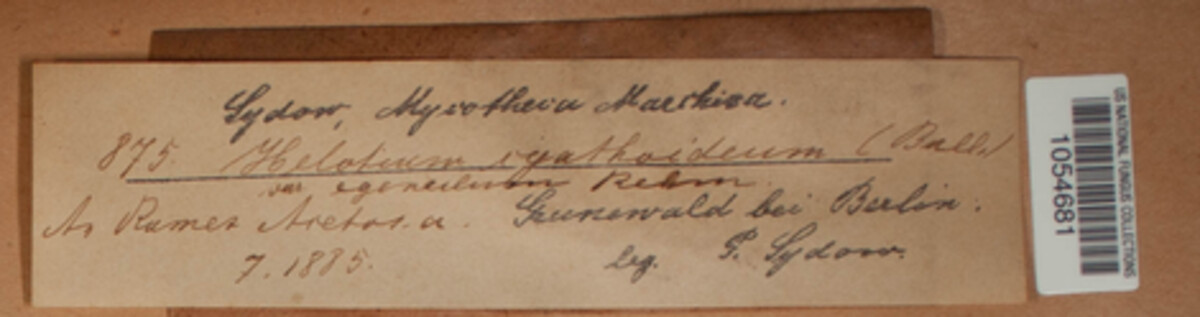 Sydow, Mycotheca Marchica.
875. Helotium cyathoideum (Bull.)
var Rehm.
An Rumex Acetosa. Grunewald bei Berlin.
7. 1885. leg. P. Sydow.
US NATIONAL FUNGUS COLLECTIONS
1054681